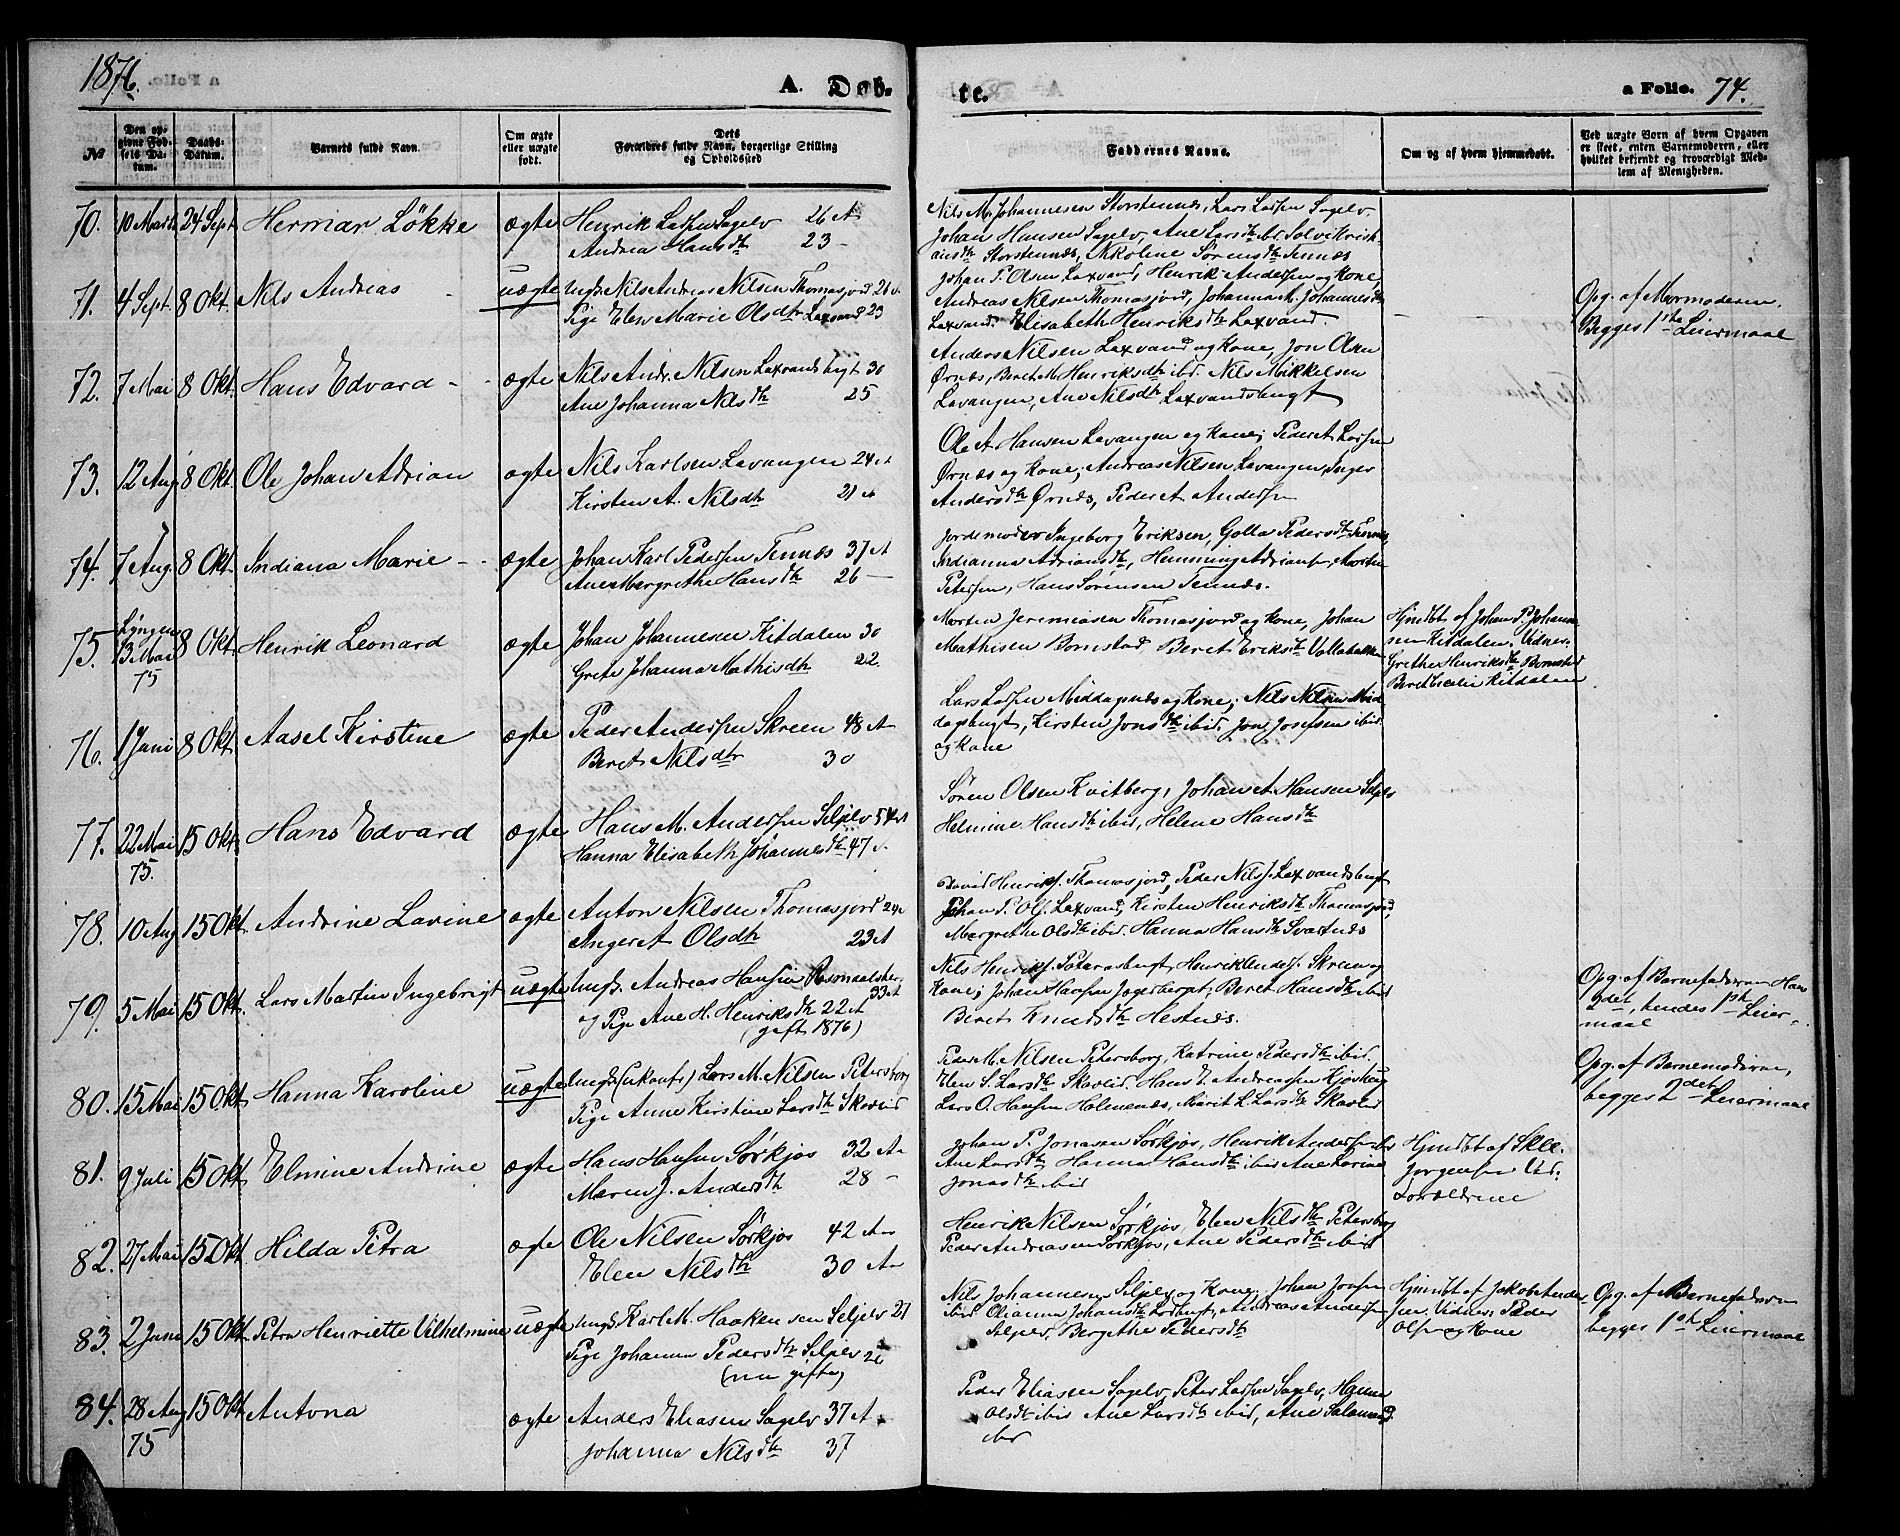 1876.
A. Døb-
te.
a Folio. 74.
№
Den op-
givne Fød-
sels Da-
tum.
Daabs-
Datum.
Barnets fulde Navn.
Om ægte
eller uægte
født.
Dets
Forældres fulde Navn, borgerlige Stilling
og Opholdssted
Faddernes Navne.
Om og af hvem hjemmedøbt.
Ved uægte Børn af hvem Opgaven
er skeet, enten Barnemoderen, eller
hvilket bekjendt og troværdigt Med-
lem af Menigheden.
70. 10 Marts 24 Sept. Herman Løkke ægte Henrik Larsen Sagelv 26 A
Andrea Hansdtr 23 -
Nils M. Johannesen Storstennæs, Lars Larsen Sagelv,
Johan Hansen Sagelv, Ane Larsdtr ibd. Solvi Krist-
iansdtr Storstennæs, Nikoline Sørensdtr Tennæs
71. 4 Sept. 8 Okt. Nils Andreas uægte Ungk. Nils Andreas Nilsen Thomasjord 26 A.
Pige Elen Marie Olsdtr Laxvand 23
Johan P. Olsen Laxvand, Henrik Andersen og Kone,
Andreas Nilsen Thomasjord, Johanna M. Johannesdtr
Laxvand. Elisabeth Henriksdtr Laxvand.
Opg. af Mormoderen.
Begges 1ste Leiermaal
72. 7 Mai 8 Okt. Hans Edvard - ægte Nils Andr. Nilsen Laxvandsbugt 30
Ane Johanna Nilsdtr 25
Anders Nilsen Laxvand og Kone, Jon Olsen
Ørnæs, Beret M. Henriksdtr ibd. Nils Mikkelsen
Lavangen, Ane Nilsdtr Laxvandsbugt
73. 12 Aug 8 Okt. Ole Johan Adrian ægte Nils Karlsen Lavangen 24 A
Kirsten A. Nilsdtr 21 A
Ole A. Hansen Lavangen og Kone; Peder A. Larsen
Ørnæs og Kone; Andreas Nilsen Lavangen, Inger
Andersdtr Ørnæs, Peder A. Andersen
74. 7 Aug. 8 Okt. Indiana Marie - ægte Johan Karl Pedersen Tennæs 37 A
Ane Margrethe Hansdtr 26 -
Jordemoder Ingeborg Eriksen, Golla Pedersdtr Tennæs
Indianna Adriansdtr, Henning Adriansen, Morten
Petersen, Hans Sørensen Tennæs.
75. Lyngen
13 Mai
75 8 Okt. Henrik Leonard ægte Johan Johannesen Kitdalen 30
Grete Johanna Mathisdtr 22.
Morten Jeremiasen Thomasjord og Kone, Johan
Mathisen Bomstad Beret Eriksdtr
Hjmdbt af Johan P. Johanne-
sen Kitdalen. Vidner:
Grethe Henriksdtr Bomstad
Beret Kitdalen
76. 1 Juni 8 Okt. Aasel Kirstine ægte Peder Andersen Skreen 48 A
Beret Nilsdtr 30
Lars Larsen Middagsnæs og Kone; Nils Nilsen Mid-
dagsbugt, Kirsten Jonsdtr ibid, Jon Josefsen ibid
og Kone
77. 22 Mai
75. 15 Okt. Hans Edvard ægte Hans M. Andersen Seljelv 54 A
Hanna Elisabeth Johannesdtr 47 A.
Søren Olsen Kvitberg, Johan A. Hansen Seljelv
Helmine Hansdtr ibid, Helene Hansdtr
78. 10 Aug 15 Okt. Andrine Lavine ægte Anton Nilsen Thomasjord 24 A
Ingeret Olsdtr 23 A
David Henriks. Thomasjord, Peder Nils. Laxvandsbugt
Johan P. Ols. Laxvand, Kirsten Henriksdtr Thomasjord,
Margrethe Olsdtr ibid. Hanna Hansdtr Svartnæs
79. 5 Mai 15 Okt. Lars Martin Ingebrigt uægte Ungk. Andreas Hansen 33 A
og Pige Ane H. Henriksdtr 22 A
(gift 1876)
Nils Henriks. Henrik Anders. Skreen og
Kone; Johan Hansen Beret Hansdtr ibid
Beret Knudsdtr Hestnæs.
Opg. af Barnefaderen Hans
2det, hendes 1ste Leier-
maal
80. 15 Mai 15 Okt. Hanna Karoline uægte Ungk. (ukonf.) Lars M. Nilsen Petersborg
Pige Anne Kirstine Larsdtr Skavlid
Peder M. Nilsen Petersborg, Katrine Pedersdtr ibid.
Elen S. Larsdtr Skavlid. Hans E. Andreassen
Lars O. Hansen Holmenæs, Marit L. Larsdtr Skavlid
Opg. af Barnemoderen,
begges 2det Leiermaal
81. 9 Juli 15 Okt Elmine Andrine ægte Hans Hansen Sørkjos 32 A
Maren J. Andersdtr 28 -
Johan P. Jonasen Sørkjos, Henrik Andersen ibd
Ane Larsdtr Hanna Hansdtr ibid Ane Larine
Jonasdtr ibid
Hjmdbt af
Jørgensen Vid.
Forældrene
82. 27 Mai 15 Okt Hilda Petra ægte Ole Nilsen Sørkjos 42 A
Elen Nilsdtr 30 A
Henrik Nilsen Sørkjos, Elen Nilsdtr Petersborg
Peder Andreasen Sørkjos, Ane Pedersdtr ibid
83. 2 Juni 15 Okt. Petra Henriette Vilhelmine uægte Ungk. Karl M. Haakensen Seljelv 21
Pige Johanna Pedersdtr Seljelv 26
(nu gifte)
Nils Johannesen Seljelv og Kone; Johan Jonsen
ibid Olianna Johansdtr Andreas Andersen
Seljelv, Bergethe Pedersdtr
Hjmdbt af Jakob Ander-
sen, Vidner: Peder
Olsen og Kone
Opg. af Barnefaderen
begges 1ste Leiermaal
84. 28 Aug
75 15 Okt Antona ægte Anders Eliasen Sagelv 37 A
Johanna Nilsdtr 37
Peder Eliassen Sagelv, Peter Larsen Sagelv, Hanna
Olsdtr ibid Ane Larsdtr ibid, Ane
ibd